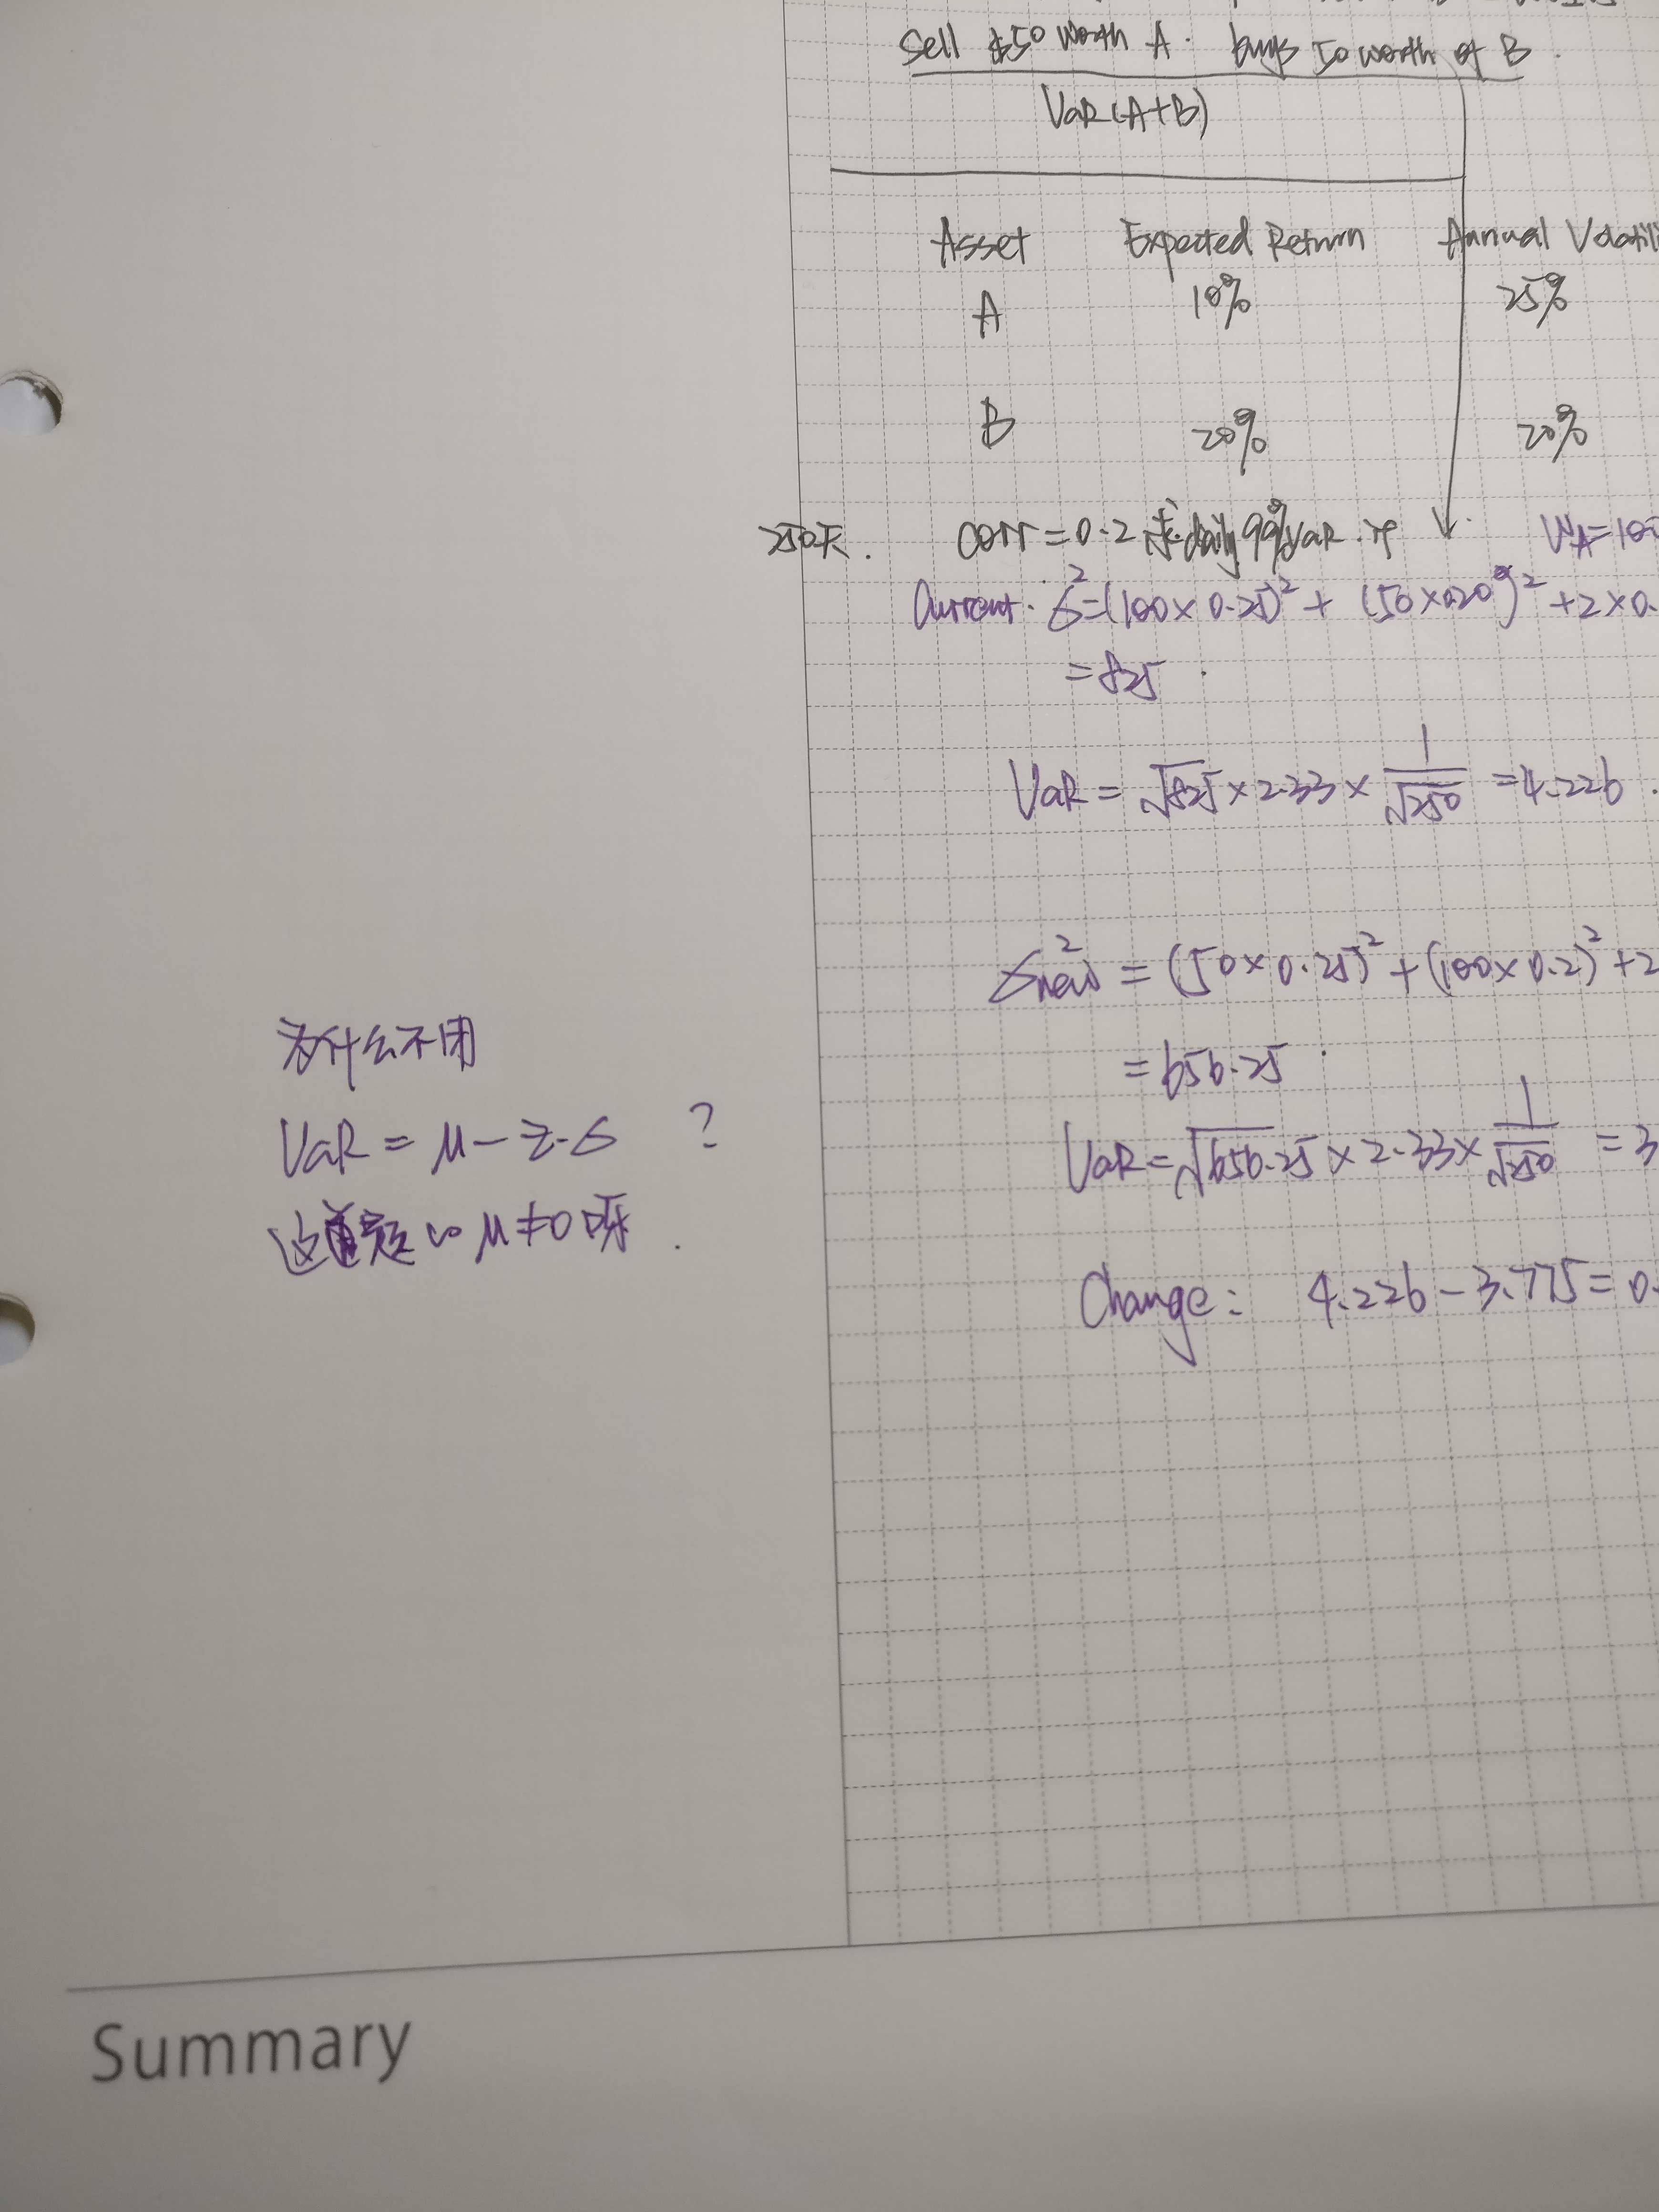 Sell $50 worth A. buys 50 worth of B.
VaR(A+B)
Asset Expected Return Annual Volatili
A 10% 25%
B 20% 20%
250天. corr=0.2 求daily 99%VaR. W_A=100
Current. σ²=(100×0.25)²+(50×0.20)²+2×0.
=825.
VaR=√825×2.33×1/√250=4.226.
σ²new=(50×0.25)²+(100×0.2)²+2
=656.25.
VaR=√656.25×2.33×1/√250=3
Change: 4.226-3.775=0.
为什么不用
VaR=μ-z·σ ?
这道题 μ≠0呀.
Summary